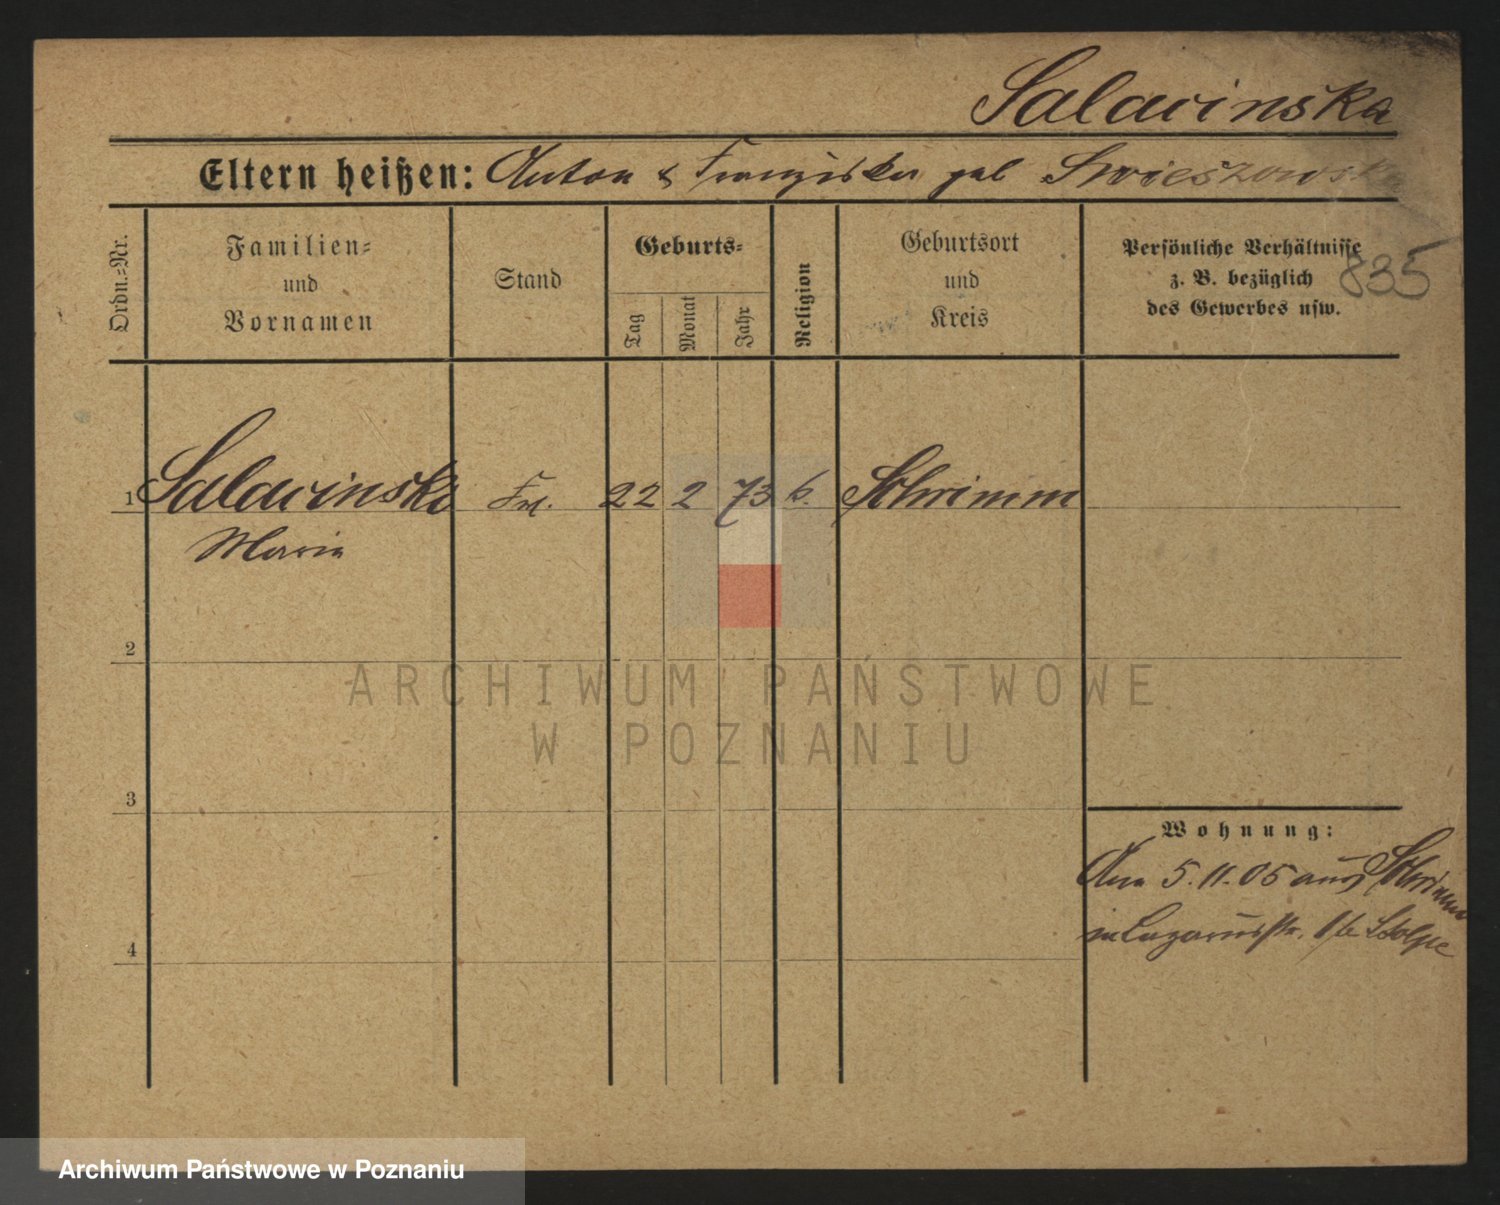 Salacinska
Eltern heißen: Anton & Franziska geb Swieszowska
Ordn.=Nr.
Familien=
und
Vornamen
Stand
Geburts=
Tag
Monat
Jahr
Religion
Geburtsort
und
Kreis
Persönliche Verhältnisse
z. B. bezüglich
des Gewerbes usw.
835
1 Salacinska Frl. 22 2 73 k. Schrimm
Maria
2
3
4
Wohnung:
Am 5.11.05 aus Schrimm
in Lazarusstr. 1 b. Stolpe
ARCHIWUM PAŃSTWOWE
W POZNANIU
Archiwum Państwowe w Poznaniu